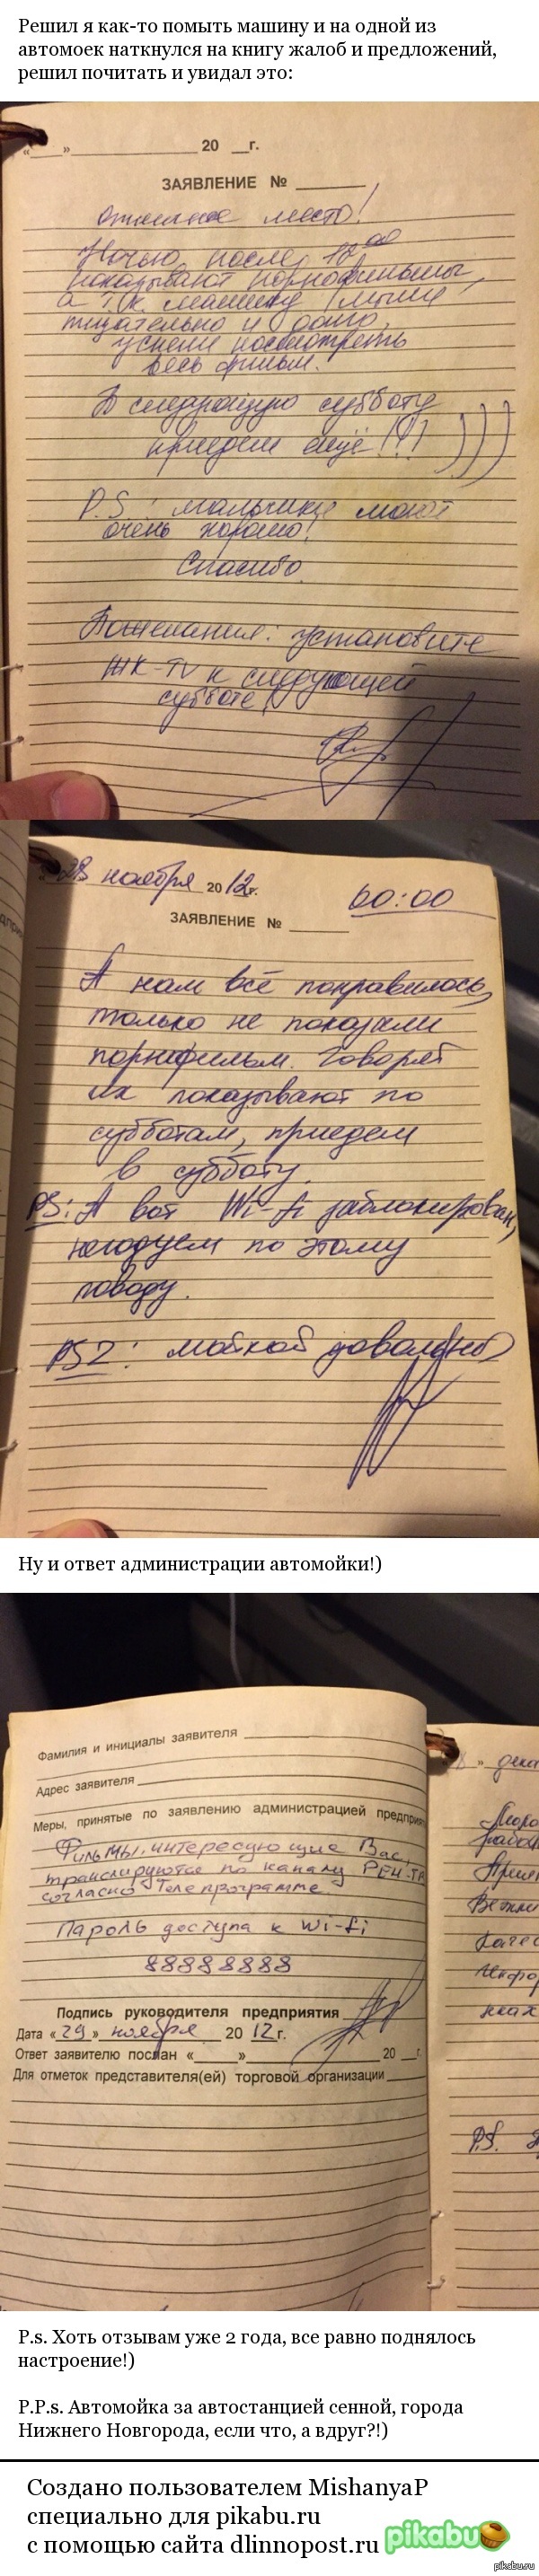 Решил я как-то помыть машину и на одной из
автомоек наткнулся на книгу жалоб и предложений,
решил почитать и увидал это:
« » 20 г.
ЗАЯВЛЕНИЕ №
отличное место!
Ночью, после 12 00
показывают порнофильмы,
а т.к. машину мыли
тщательно и долго,
успели посмотреть
весь фильм.
В следующую субботу
приедем ещё!!! )))
P.S.: мальчики моют
очень хорошо!
Спасибо
Пожелания: установите
ЖК-TV к следующей
субботе!
«28» ноября 2012г.
00:00
ЗАЯВЛЕНИЕ №
А нам всё понравилось,
только не показали
порнофильм. Говорят
их показывают по
субботам, приедем
в субботу.
PS: А вот Wi-fi заблокирован,
негодуем по этому
поводу.
PS2: мойкой довольны
Ну и ответ администрации автомойки!)
Фамилия и инициалы заявителя
Адрес заявителя
Меры, принятые по заявлению администрацией предпри
Фильмы, интересующие Вас,
транслируются по каналу РЕН-ТВ
согласно Телепрограмме.
Пароль доступа к Wi-fi
88888888
Подпись руководителя предприятия
Дата «29» ноября 2012г.
Ответ заявителю послан « » 20 г.
Для отметок представителя(ей) торговой организации
» дека
P.S.
P.s. Хоть отзывам уже 2 года, все равно поднялось
настроение!)
P.P.s. Автомойка за автостанцией сенной, города
Нижнего Новгорода, если что, а вдруг?!)
Создано пользователем MishanyaP
специально для pikabu.ru
с помощью сайта dlinnopost.ru
pikabu
pikabu.ru